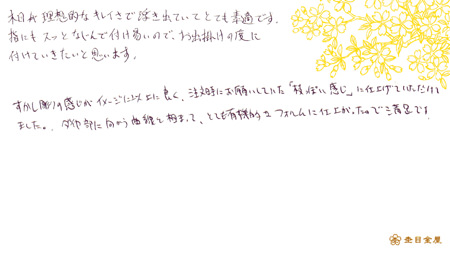 木目が理想的なキレイさで浮き出ていてとても素適です。
指にもスッとなじんで付け易いので、お出掛けの度に
付けていきたいと思います。
すかし彫りの感じがイメージ以上に良く、注文時にお願いしていた「枝っぽい感じ」に仕上げていただけ
ました。ダイヤ部に向かう曲線と相まって、とても有機的なフォルムに仕上がったので満足です
杢目金屋